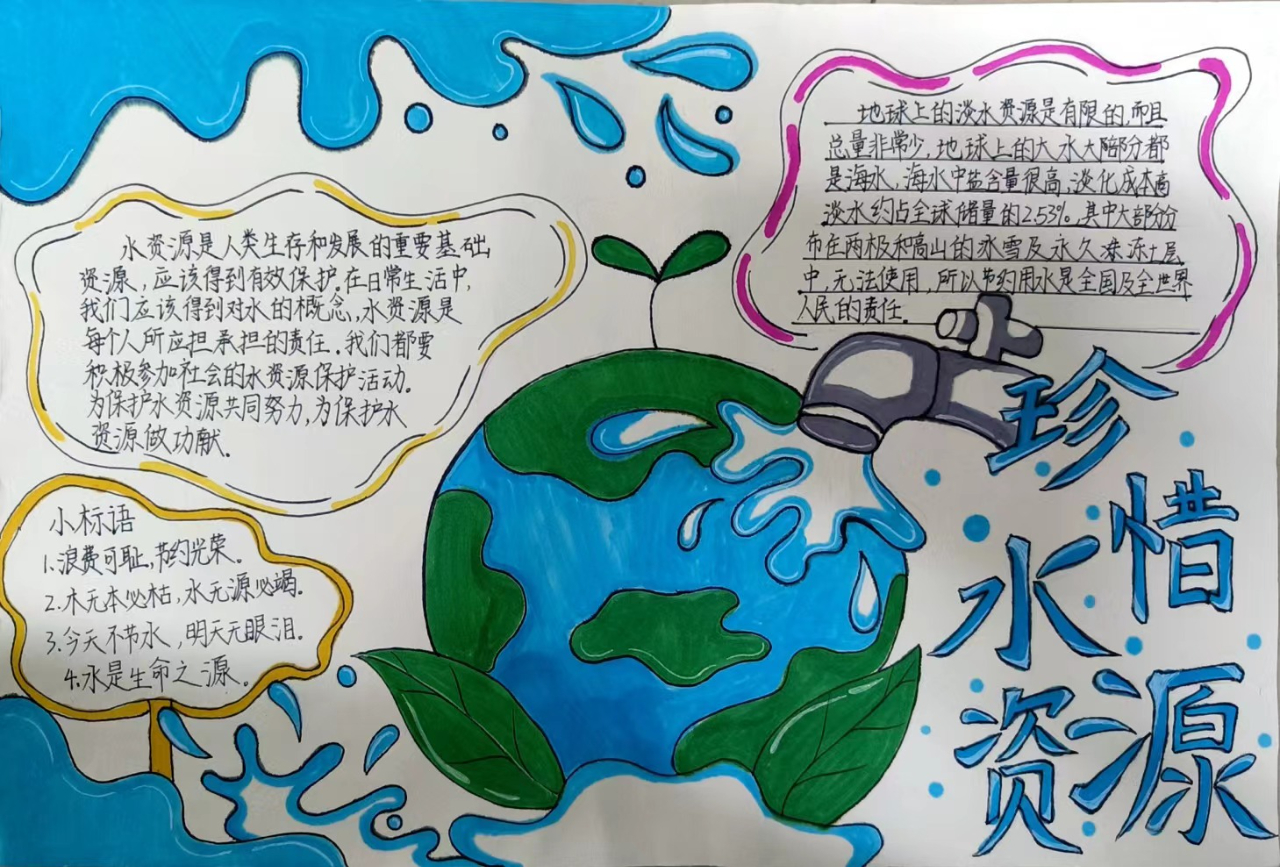 珍惜水资源
地球上的淡水资源是有限的,而且
总量非常少,地球上的大水大陪部分都
是海水,海水中盐含量很高,淡化成本高
淡水约占全球储量的2.53%,其中大部分分
布在两极和高山的冰雪及永久冻土层
中,无法使用,所以节约用水是全国及全世界
人民的责任.
水资源是人类生存和发展的重要基础
资源,应该得到有效保护.在日常生活中,
我们应该得到对水的概念,水资源是
每个人所应担承担的责任.我们都要
积极参加社会的水资源保护活动.
为保护水资源共同努力,为保护水
资源做功献.
小标语
1.浪费可耻,节约光荣.
2.木无本必枯,水无源必竭.
3.今天不节水,明天无眼泪.
4.水是生命之源.